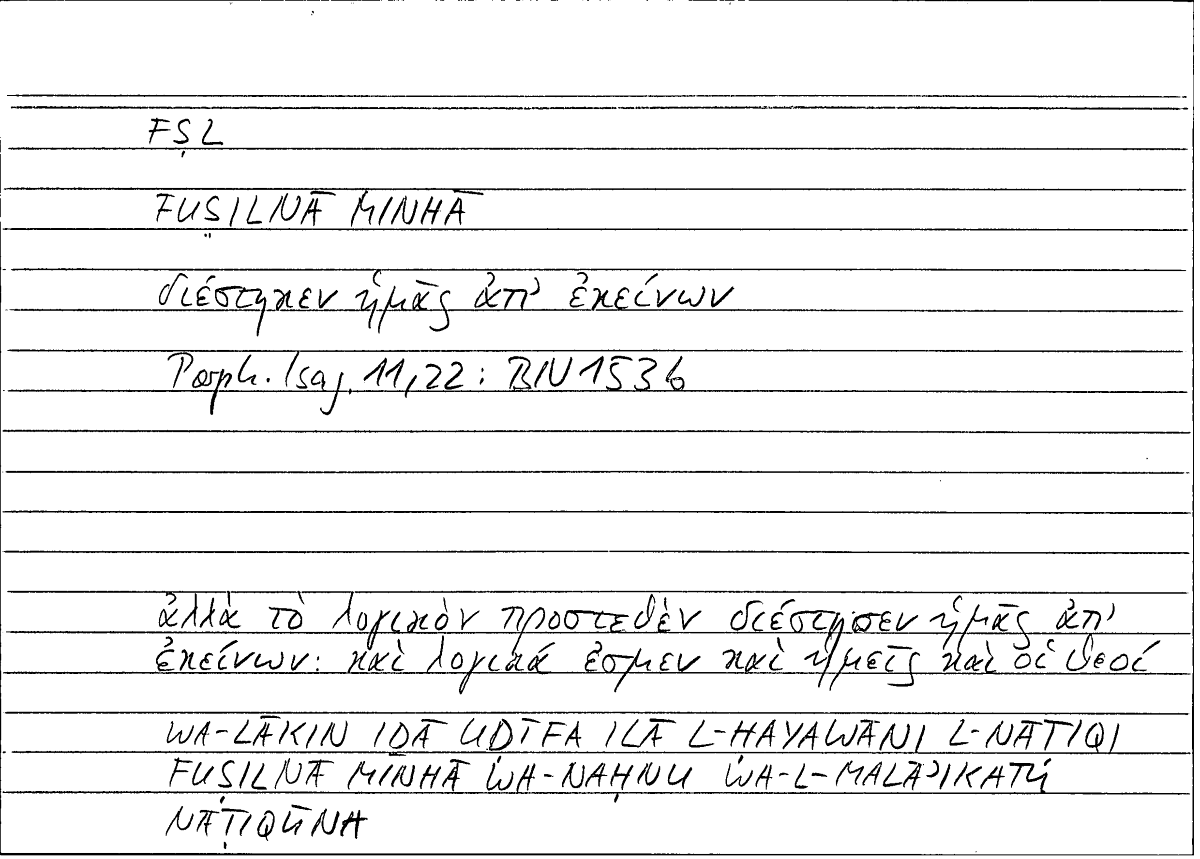 FṢL
FUṢILNĀ MINHĀ
διέστηκεν ἡμᾶς ἀπ' ἐκείνων
Porph. Isag. 11,22: BIN 153b
ἀλλὰ τὸ λογικὸν προστεθὲν διέστησεν ἡμᾶς ἀπ'
ἐκείνων: καὶ λογικά ἐσμεν καὶ ἡμεῖς καὶ οἱ θεοί
WA-LĀKIN IḎĀ UḌĪFA ILĀ L-HAYAWĀNI L-NĀṬIQI
FUṢILNĀ MINHĀ WA-NAḤNU WA-L-MALĀʾIKATU
NĀṬIQŪNA